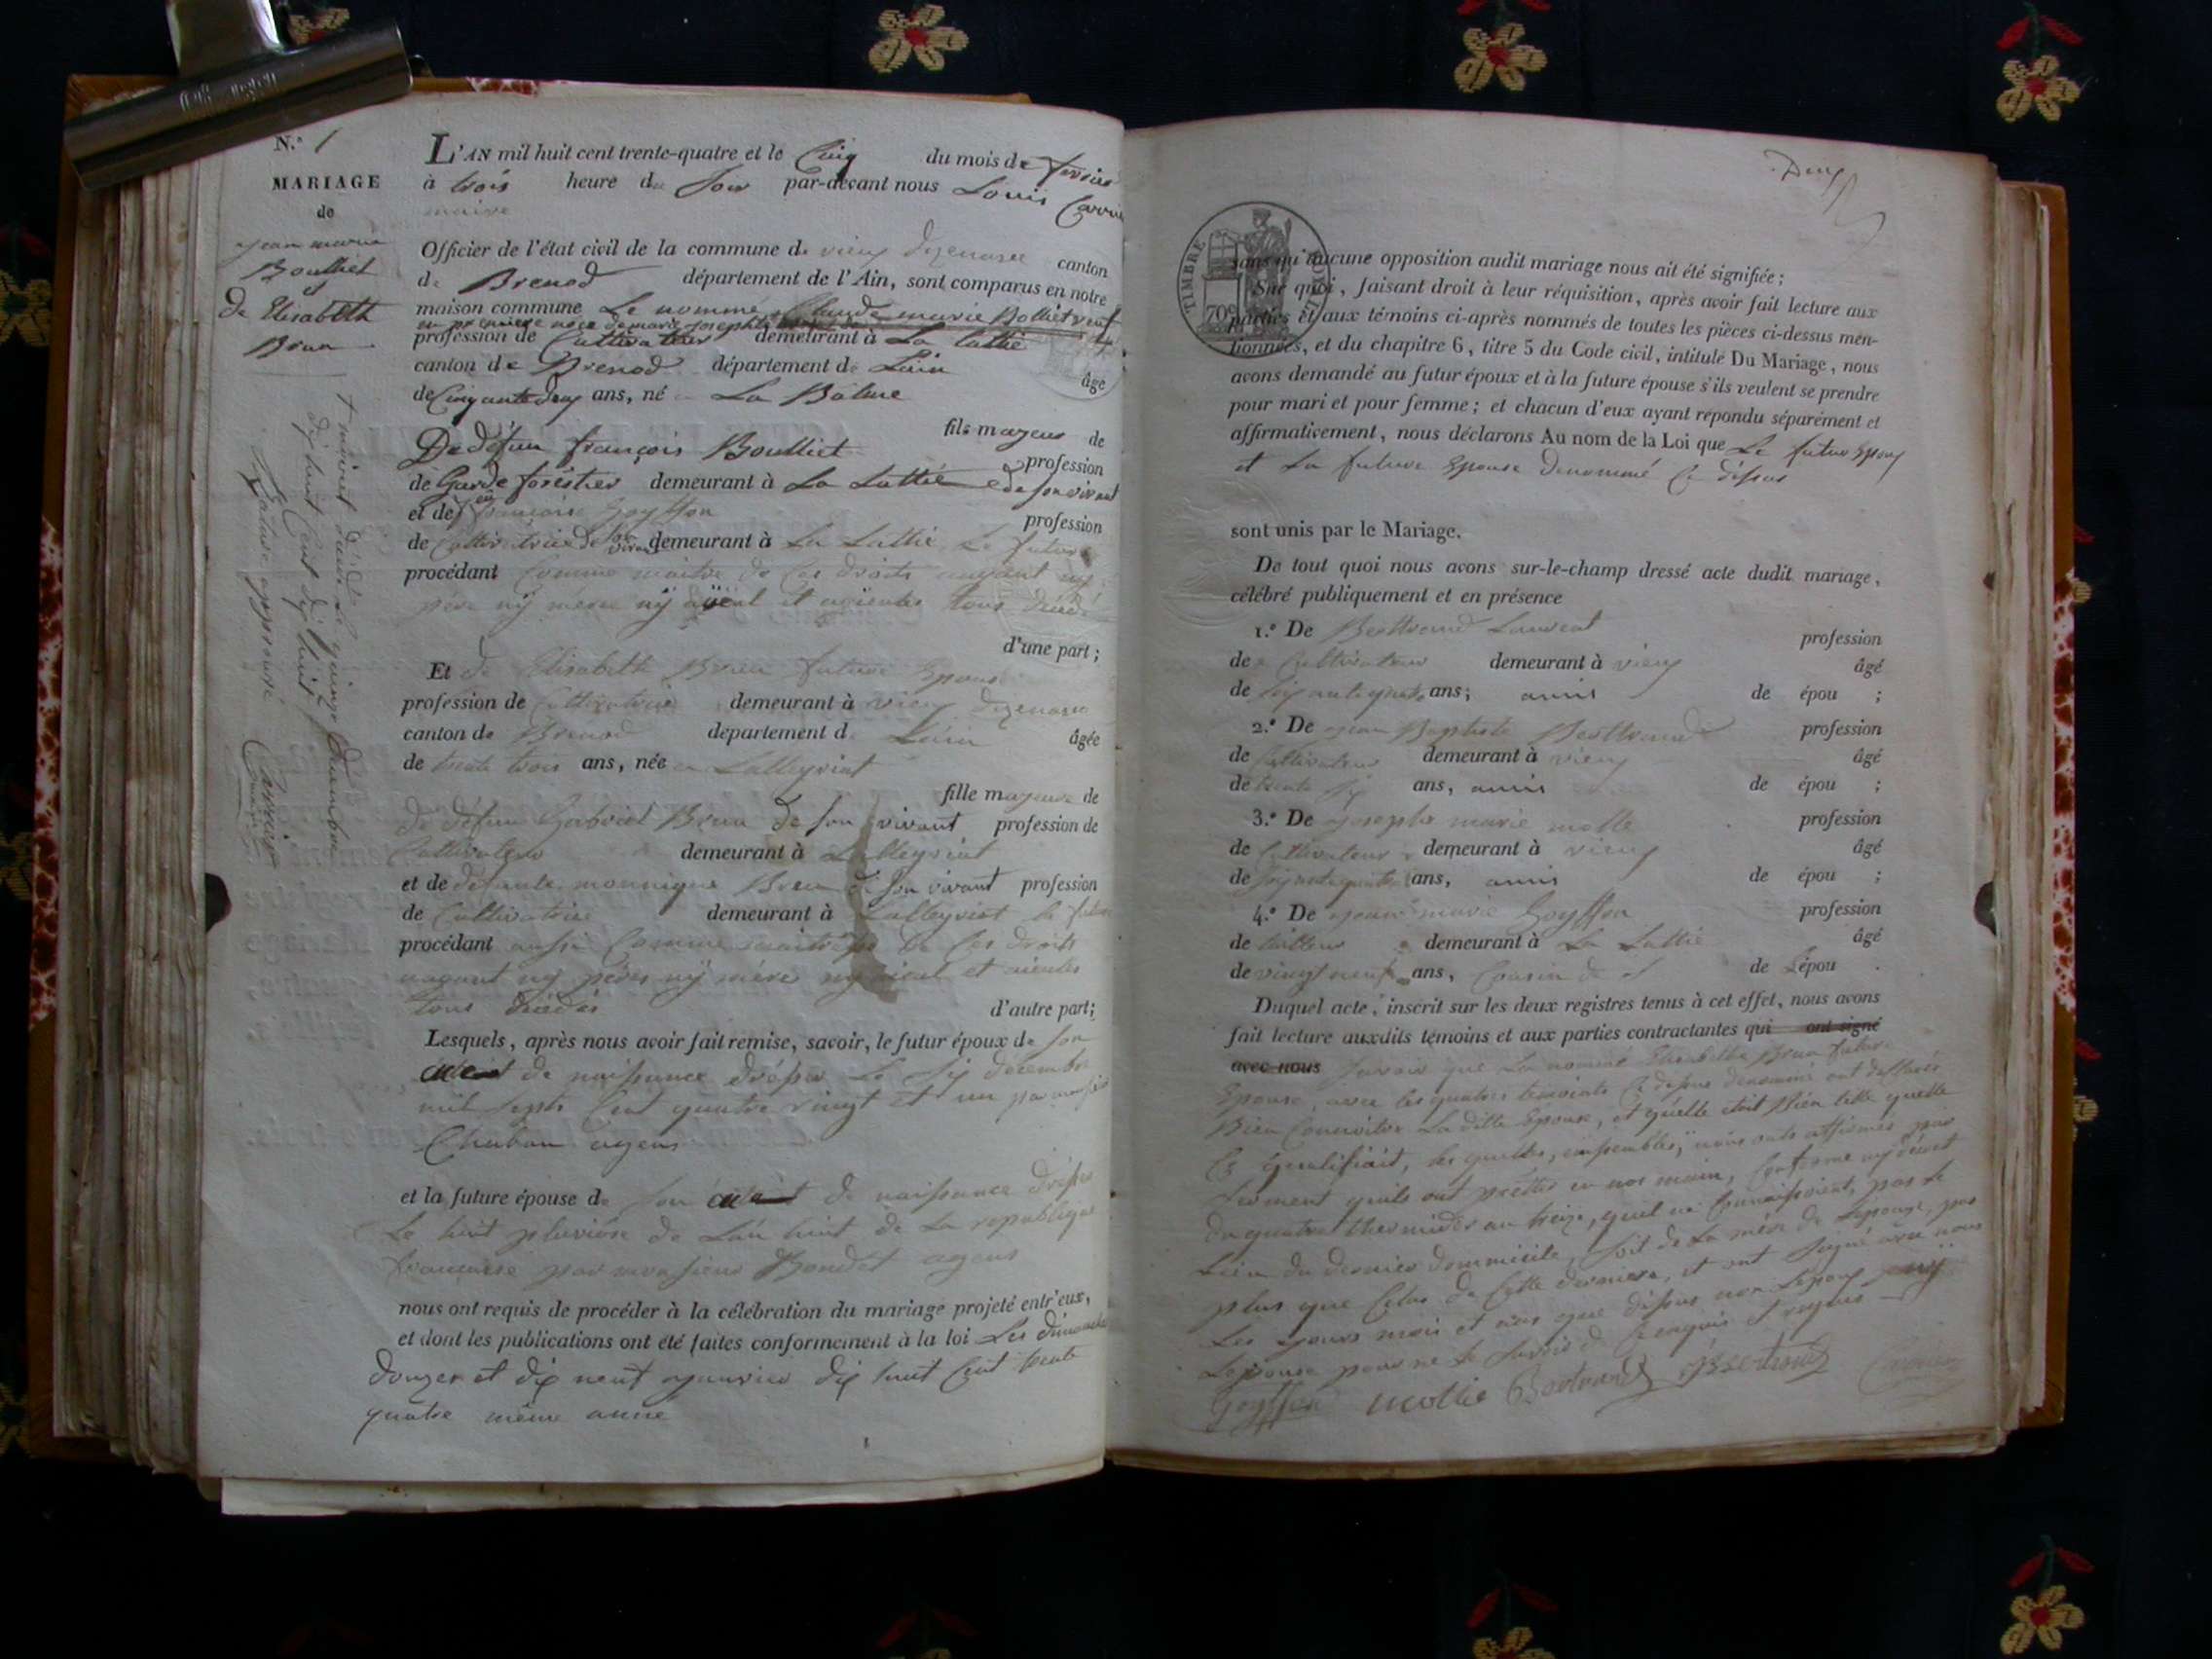 N.° 1
MARIAGE
de
jean marie
Boulliet
et
de Elisabeth
Brun
L'AN mil huit cent trente-quatre et le Cinq du mois de fevrier
à trois heure du soir par-devant nous Louis Carrier
maire
Officier de l'état civil de la commune de vieu dizenave canton
de Brenod département de l'Ain, sont comparus en notre
maison commune Le nommé Claude marie Bolliet veuf
en premiere noce de marie josephte
profession de Cultivateur demeurant à La lattie
canton de Brenod département de Lain âgé
de Cinquante deux ans, né La Balme
fils majeur de
De défun françois Boulliet profession
de Garde forestier demeurant à La Lattie de son vivant
et de françoise Goyffon profession
de Cultivatrice de son vivant demeurant à La Lattie Le futur
procédant Comme maitre de ses droits nayant ny
père ny mère ny ayeul et ayeules tous décédé
d'une part;
Et de Elisabeth Brun future Epouse
profession de Cultivatrice demeurant à vieu dizenave
canton de Brenod département de Lain âgée
de trente trois ans, née Lalleyriat
fille majeure de
de défun Gabriel Brun de son vivant profession de
Cultivateur demeurant à Lalleyriat
et de défunte monnique Brun de son vivant profession
de Cultivatrice demeurant à Lalleyriat la future
procédant aussi Comme maitresse de ses droits
nayant ny père ny mère ny aieul et aieules
tous décédés d'autre part;
Lesquels, après nous avoir fait remise, savoir, le futur époux de son
de naissance dréssé Le six décembre
mil sept Cent quatre vingt et un par monsieur
Chaban agens
et la future épouse de son de naissance dréssé
Le huit pluviose de Lan huit de La republique
francaise par monsieur Bondet agens
nous ont requis de procéder à la célébration du mariage projeté entr'eux,
et dont les publications ont été faites conformément à la loi Les dimanche
douze et dix neuf janvier dix huit Cent trente
quatre même année
dix huit Cent dix huit
Rature approuvé Carrier
Deux
TIMBRE ROYAL
sans qu'aucune opposition audit mariage nous ait été signifiée;
Sur quoi, faisant droit à leur réquisition, après avoir fait lecture aux
parties et aux témoins ci-après nommés de toutes les pièces ci-dessus men-
tionnées, et du chapitre 6, titre 5 du Code civil, intitulé Du Mariage, nous
avons demandé au futur époux et à la future épouse s'ils veulent se prendre
pour mari et pour femme; et chacun d'eux ayant répondu séparément et
affirmativement, nous déclarons Au nom de la Loi que Le futur Epoux
et La future Epouse denommé Ci dessus
sont unis par le Mariage.
De tout quoi nous avons sur-le-champ dressé acte dudit mariage,
célébré publiquement et en présence
1.° De Berttrand Laurent profession
de Cultivateur demeurant à vieu âgé
de soixante quatre ans; amis de épou ;
2.° De jean Baptiste Berttrand profession
de Cultivateur demeurant à vieu âgé
de trente six ans, amis de épou ;
3.° De joseph marie molle profession
de Cultivateur demeurant à vieu âgé
de soixante quatre ans, amis de épou ;
4.° De jean marie Goyffon profession
de tailleur demeurant à La Lattie âgé
de vingt neuf ans, Cousin de de Lépou .
Duquel acte, inscrit sur les deux registres tenus à cet effet, nous avons
fait lecture auxdits témoins et aux parties contractantes qui ont signé
avec nous savoir que La nommé Elisabeth Brun future
Epouse, avec les quatres temoints Ci dessus denommé ont dellaré
Bien Connoitre La ditte Epouse, et quelle etoit Bien telle quelle
Ce qualifiait, les quelles, ensembles, nous onts affirmés par
serment quils ont prettés en nos main, Conforme
du quatre thermidor an treize, quil ne Connaissoient, pas le
Lieu du dernier dommicile, soit de La mère de Lepouse, pas
plus que Celui de Cette derniere, et ont signé avec nous
Les jours mois et ans que dessus non Lepoux
Lepouse pour ne le savoir de Ce enquis et requis
Goyffon mollie Bertrand Bertrand Carrier